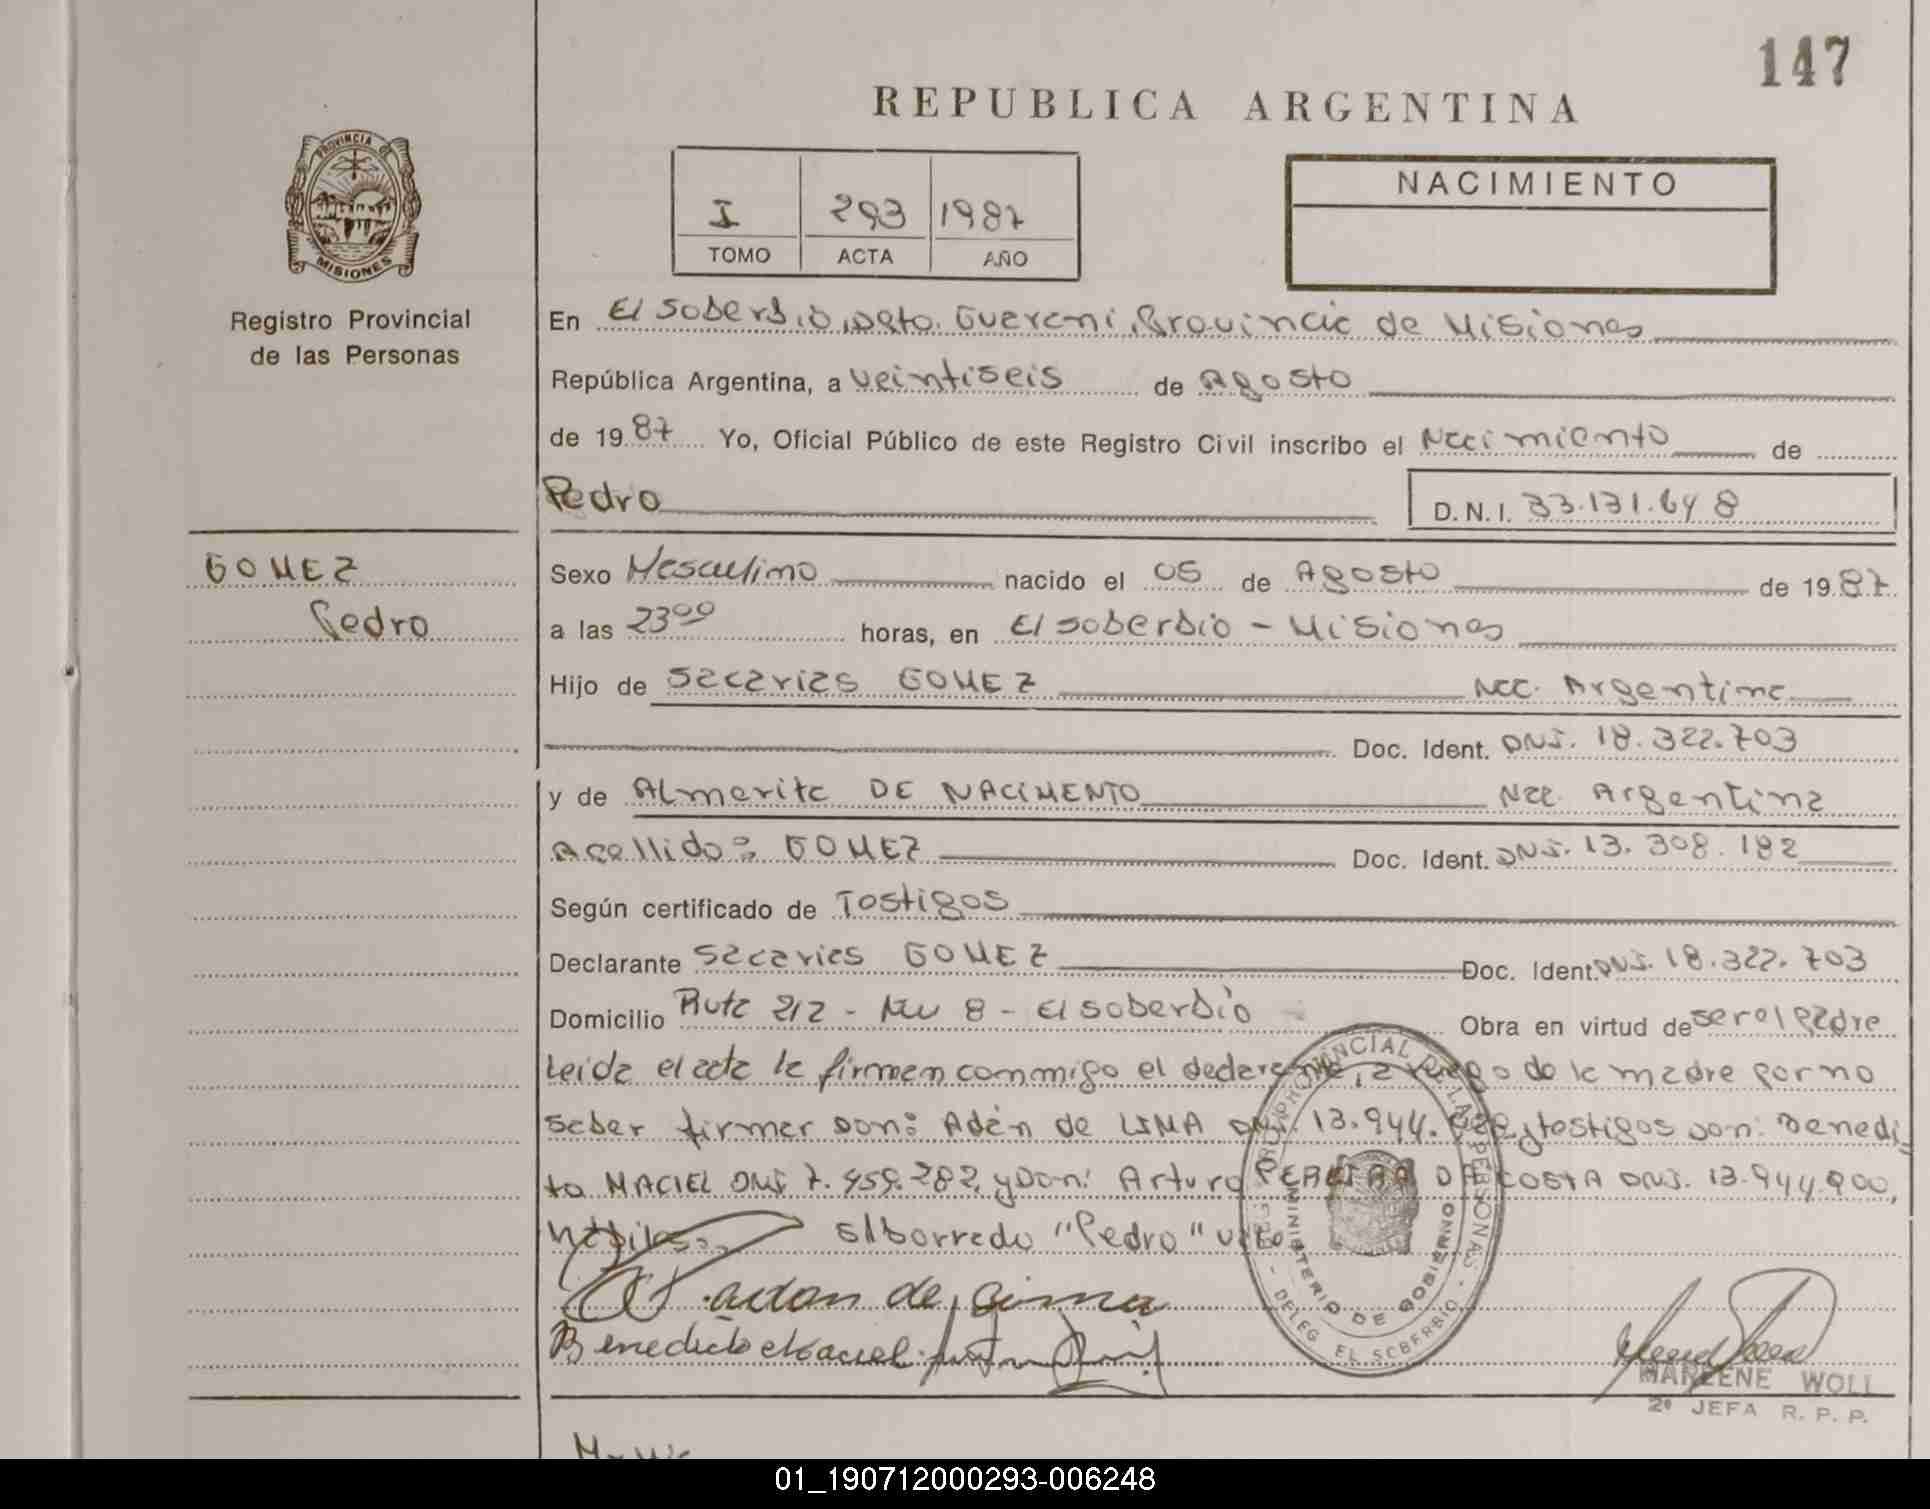 147
REPUBLICA ARGENTINA
PROVINCIA DE
MISIONES
Registro Provincial
de las Personas
I 293 1987
TOMO ACTA AÑO
NACIMIENTO
En El Soberbio, Dpto. Guarani, Provincia de Misiones
República Argentina, a veintiseis de Agosto
de 1987 Yo, Oficial Público de este Registro Civil inscribo el Nacimiento de
Pedro D.N.I. 33.131.648
GOMEZ
Pedro
Sexo Masculino nacido el 05 de Agosto de 1987
a las 23 00 horas, en El Soberbio - Misiones
Hijo de Sacarias GOMEZ Nac. Argentina
Doc. Ident. DNI. 18.322.703
y de Almerita DE NACIMENTO Nac. Argentina
Apellido: GOMEZ Doc. Ident. DNI. 13.308.182
Según certificado de Testigos
Declarante Sacarias GOMEZ Doc. Ident. DNI. 18.322.703
Domicilio Ruta 212 - Km 8 - El Soberbio Obra en virtud de ser el padre
Leida el acta la firman conmigo el declarante, a ruego de la madre por no
saber firmar Don: Adán de LIMA DNI. 13.944. testigos Don: Benedi-
to MACIEL DNI 7.459.282, y Don: Arturo PEREIRA DA COSTA DNI. 13.944.900,
habiles. El borrado "Pedro" vale
adan de Lima
Benedicto Maciel
REGISTRO PROVINCIAL DE LAS PERSONAS
MINISTERIO DE GOBIERNO
DELEG. EL SOBERBIO
MARLENE WOLL
2º JEFA R. P. P.
01_190712000293-006248